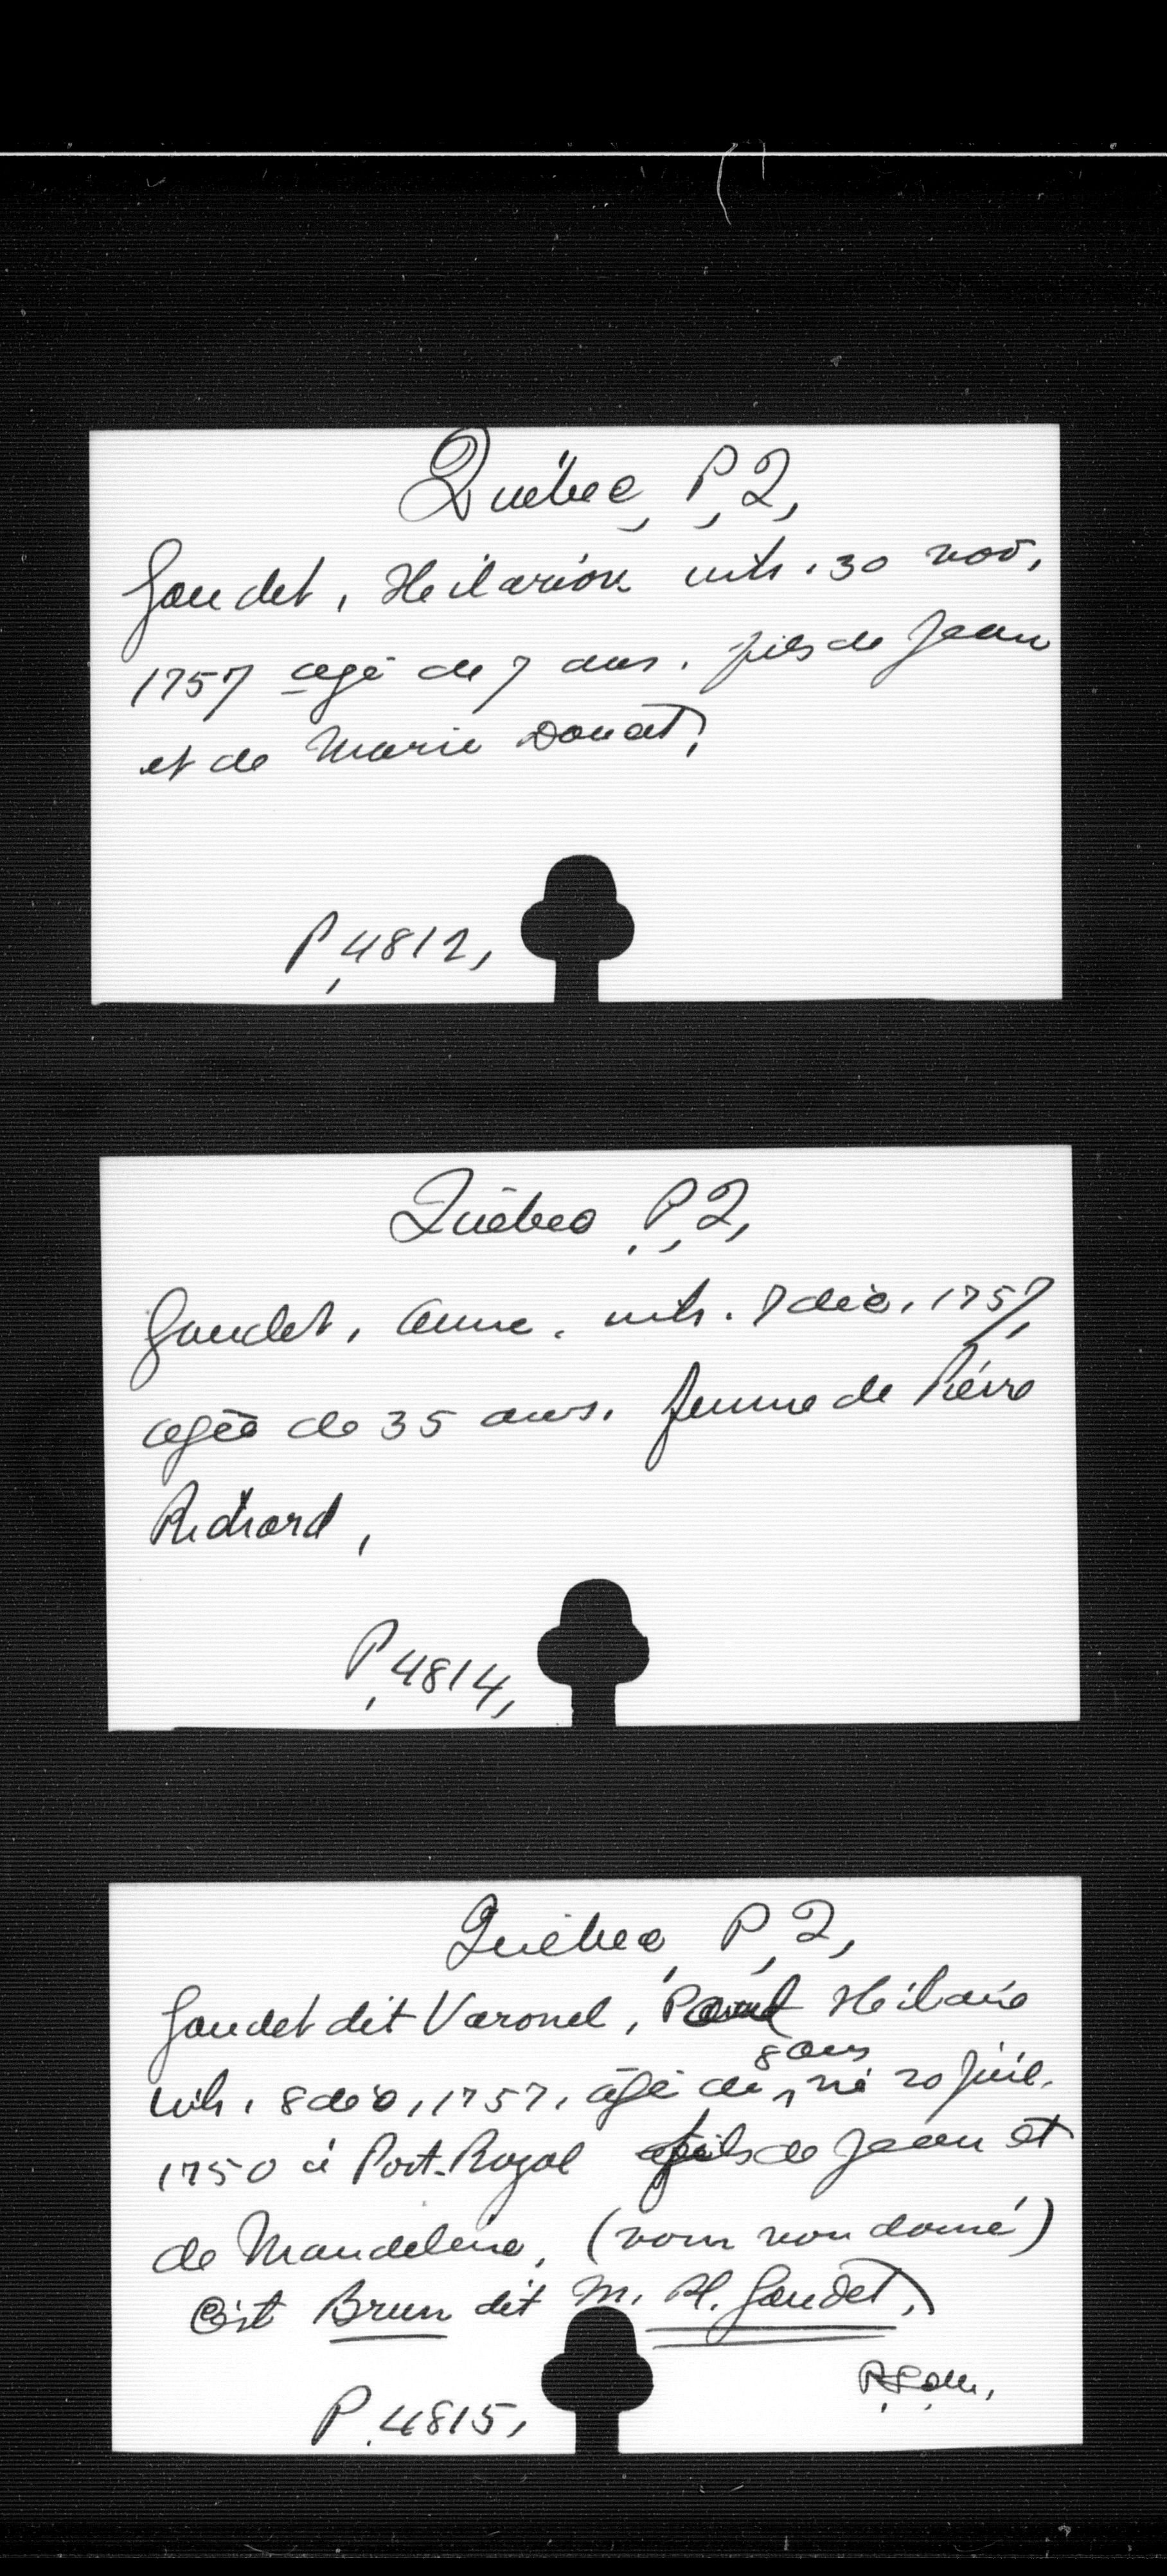 Québec, P, Q,
Gaudet, Heilarion inh. 30 nov,
1757 agé de 7 ans. fils de Jean
et de Marie Douat,
P, 4812,
Québec, P, Q,
Gaudet, Anne, inh. 7 déc, 1757,
agée de 35 ans. femme de Piérre
Richard,
P, 4814,
Québec, P, Q,
Gaudet dit Varonel, Paul Heilaire
8 ans
inh, 8 déc, 1757, âgé de né 20 juil.
1750 à Port-Royal fils de Jean et
de Mandeleine, (nom non donné)
C'est Brun dit M. Pl. Gaudet,
P. 4815,